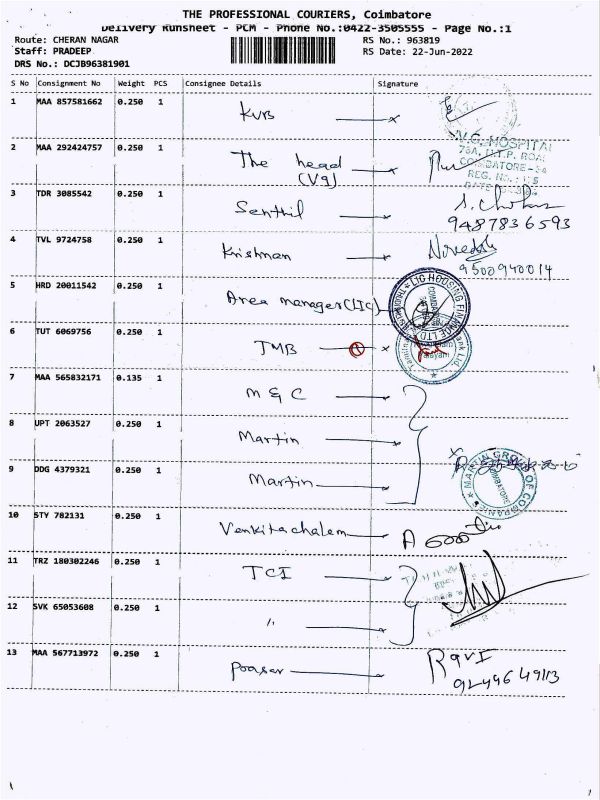 THE PROFESSIONAL COURIERS, Coimbatore
Delivery Runsheet - PCM - Phone No.:0422-3505555 - Page No.:1
Route: CHERAN NAGAR RS No.: 963819
Staff: PRADEEP RS Date: 22-Jun-2022
DRS No.: DCJB96381901
S No Consignment No Weight PCS Consignee Details Signature
1 MAA 857581662 0.250 1 KVB
2 MAA 292424757 0.250 1 The head (Vg)
V.G. HOSPITAL
COIMBATORE
REG. NO.
3 TDR 3085542 0.250 1 Senthil
9487836593
4 TVL 9724758 0.250 1 Krishnan
9500940014
5 HRD 20011542 0.250 1 Area manager (LIC)
LIC HOUSING FINANCE LTD
6 TUT 6069756 0.250 1 TMB
Bank Ltd.
7 MAA 565832171 0.135 1 M & C
8 UPT 2063527 0.250 1 Martin
9 DDG 4379321 0.250 1 Martin
MARTIN GROUP OF COMPANIES
COIMBATORE
10 STY 782131 0.250 1 Venkitachalam
11 TRZ 180302246 0.250 1 TCI
12 SVK 65053608 0.250 1 "
13 MAA 567713972 0.250 1 Poasar
Ravi